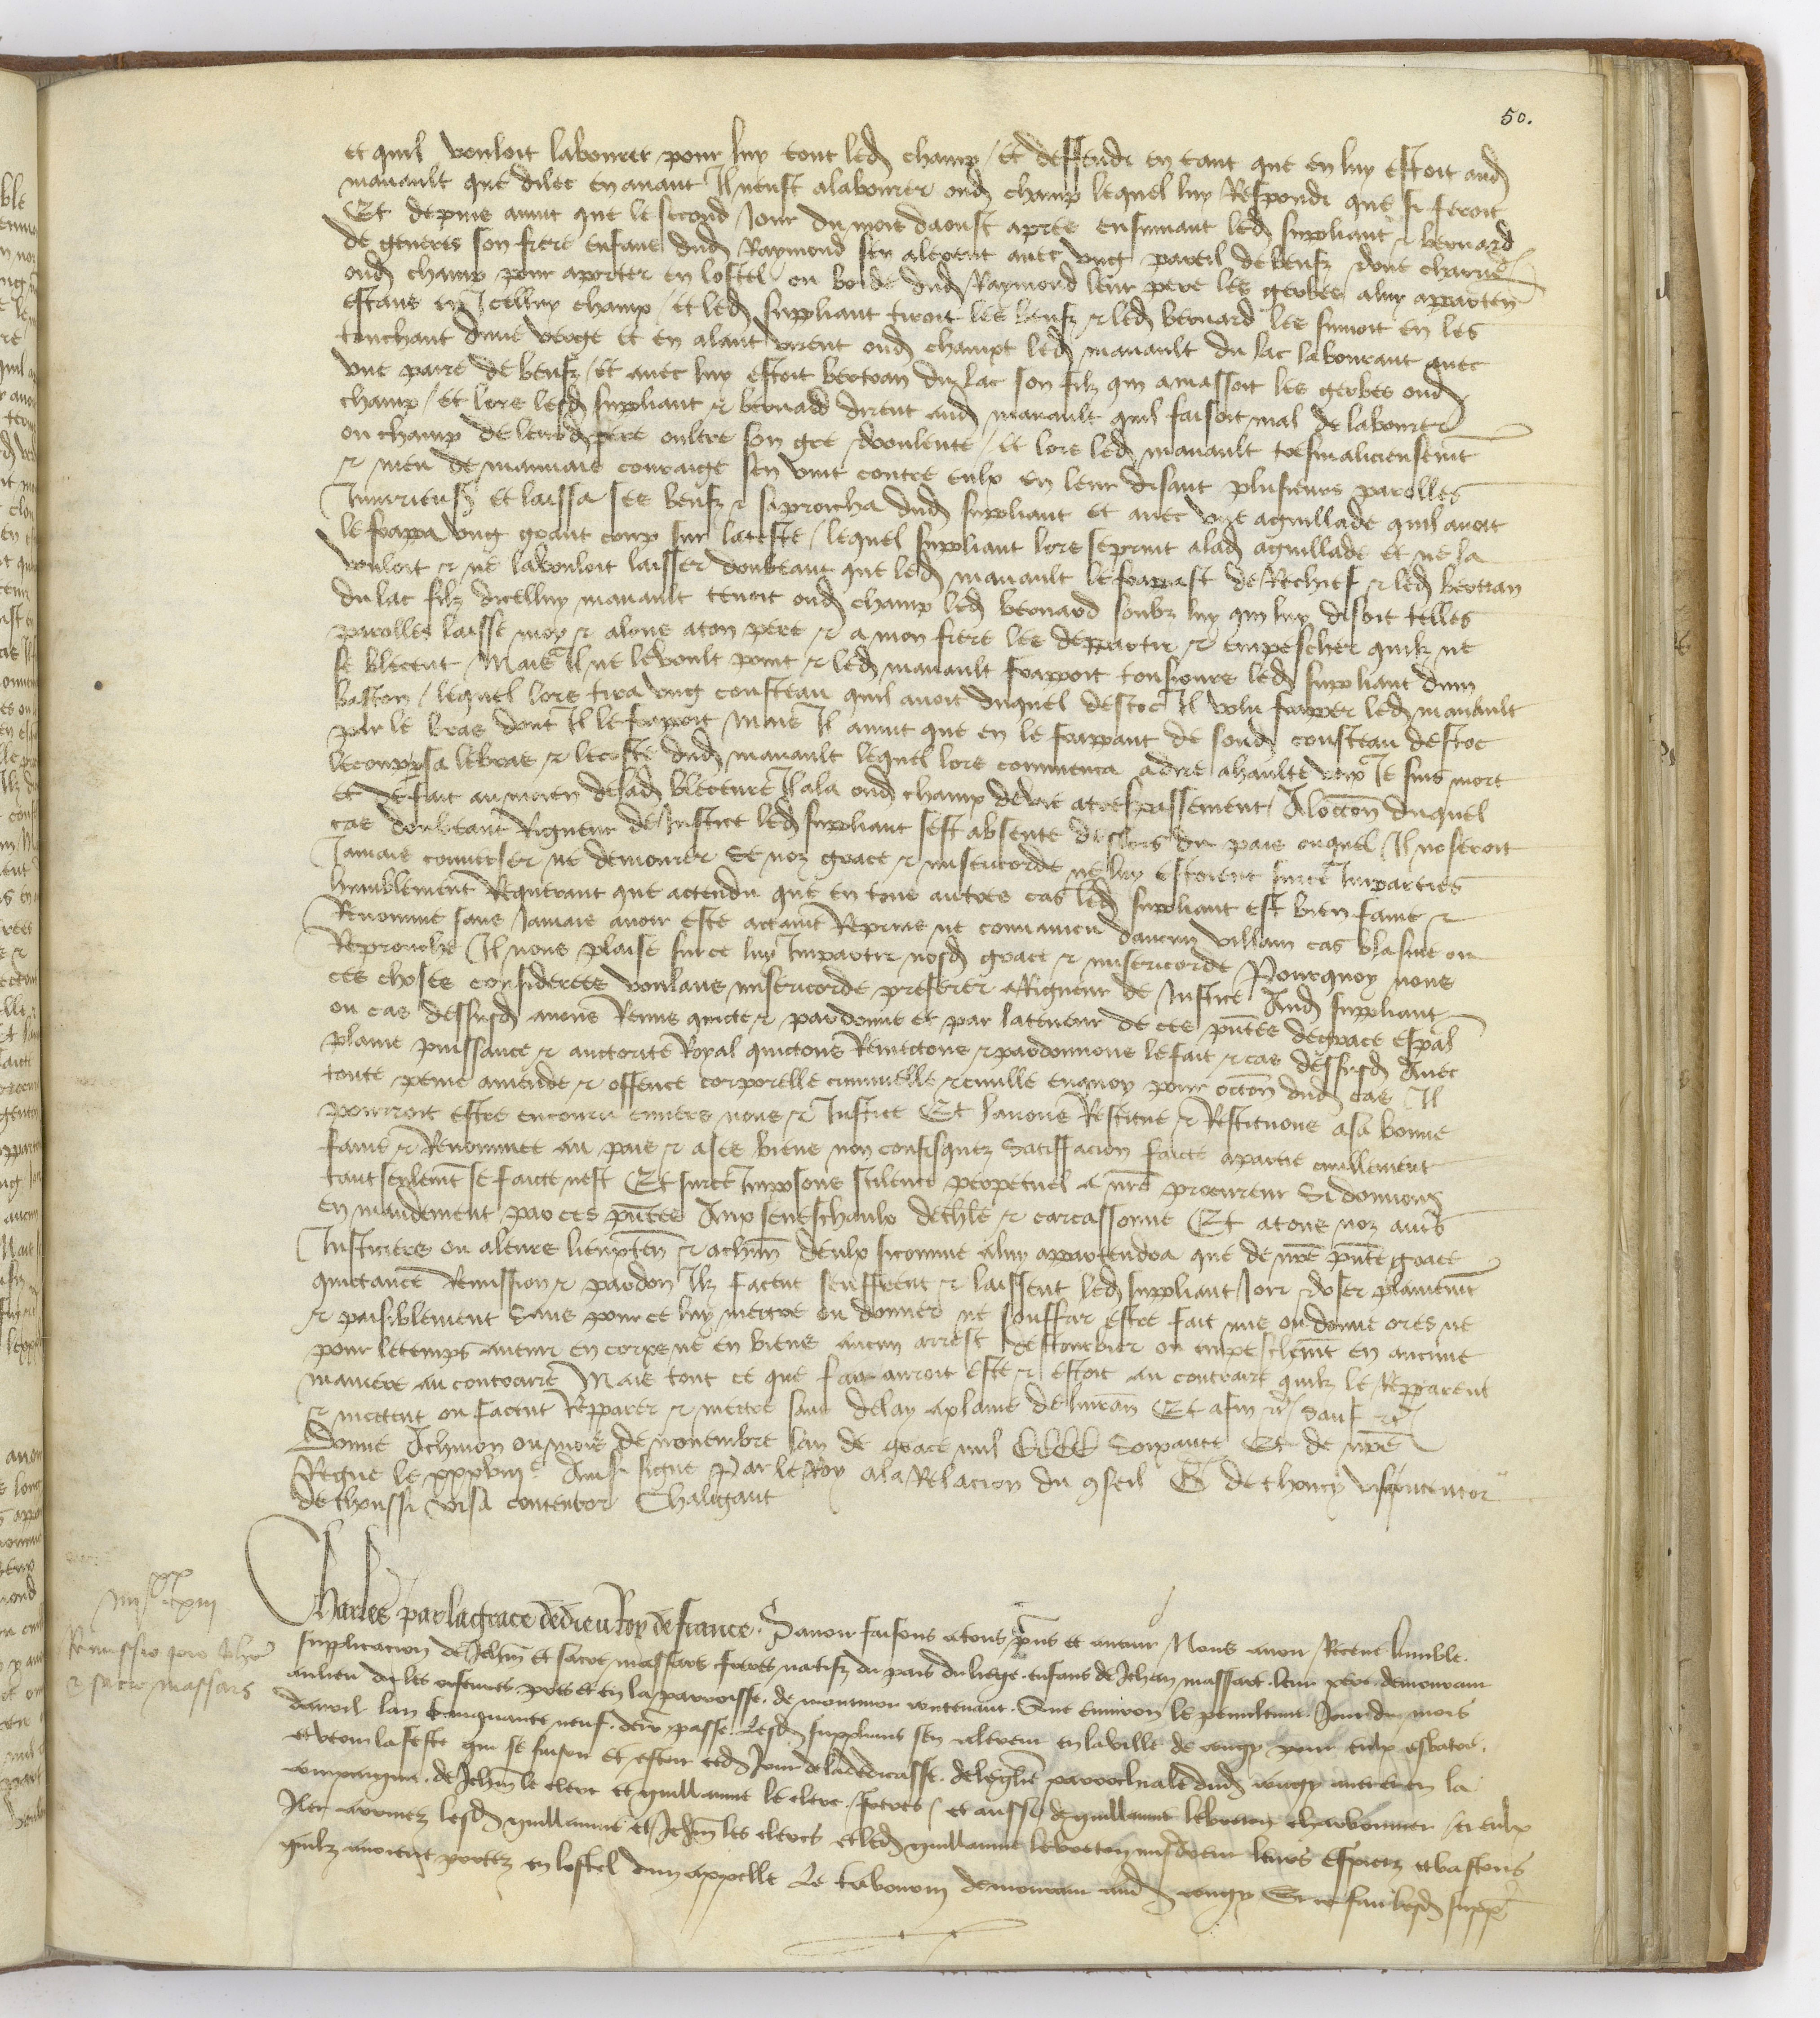 50.
et quil vouloit labourer pour luy tout led champ / et deffendi en tant que en luy estoit aud
manault que dilec en avant Il neust a labourer oud champ lequel luy Respondi que si feroit
Et depuis avint que le second Jour du mois daoust apres ensuivant led suppliant & bernard
de generes son frere enfans dud Raymond sen alerent avec ung pareil de beufz dont charrue
oud champ pour aporter en lostel ou borde dud Raymond leur pere les gerbes a luy apparten
estans en Icelluy champ / et led suppliant tiroit les beufz & led bernard les suivoit en les
touchant dune verge et en alant virent oud champt led manault du lac labourant avec
une paire de beufz / et avec luy estoit bertran du lac son filz qui amassoit les gerbes oud
champ / et lors lesd suppliant & bernard dirent aud manault quil faisoit mal de labourer
ou champ de leurd pere oultre son gre & voulente / et lors led manault tresmalicieusemt
& meu de mauvais couraige sen vint contre eulx en leur disant plusieurs parolles
Iniurieuses et laissa ses beufz & saproucha dud suppliant et avec une aguillade quil avoit
le frappa ung grant coup sur la teste / lequel suppliant lors se print a lad aguillade et ne la
vouloit & ne la vouloit laisser doubtant que led manault le frappast de Rechief & led bertran
du lac filz dicelluy manault tenoit oud champ led bernard soubz luy qui luy disoit telles
parolles laisse moy & alons a ton pere & a mon frere les deppartir & empescher quilz ne
se blecent / Mais Il ne le voult point & led manault frappoit tousiours led suppliant dun
baston / lequel lors tira ung cousteau quil avoit duquel destoc Il volu frapper led manault
par le bras dont Il le frappoit Mais Il avint que en le frappant de sond cousteau destoc
le coup persa le bras & le coste dud manault lequel lors commenca a dire a haulte voix Je suis mort
et de fait au moien de lad bleceure Il ala oud champ de vie a trespassement / A loccon duquel
cas doubtant Rigueur de Justice led suppliant sest absente deslors du pais ouquel Il noseroit
Jamais converser ne demourer se noz grace & misericorde ne luy estoient surce Imparties
humblement Requerant que actendu que en tous autres cas led suppliant est bien fame &
Renomme sans Jamais avoir este actaint Reprins ne convaincu daucun villain cas blasme ou
Reprouche Il nous plaise surce luy Impartir nosd grace & misericorde Pourquoy nous
ces choses considerees voulans misericorde preferer a Rigueur de Justice Aud suppliant
ou cas dessusd avons Remis quicte & pardonne et par la teneur de ces pntes de grace espal
plaine puissance & auctorite Royal quictons Remectons & pardonnons le fait & cas dessusd Avec
toute peine amende & offence corporelle criminelle & civille enquoy pour occon dud cas Il
pourroit estre encouru envers nous & Justice Et lavons Restitue & Restituons a sa bonne
fame & Renommee au pais & a ses biens non confisquez Satiffacion faicte a partie civillement
tant seulemt se faicte nest Et surce Imposons scilence perpetuel a nre procureur Si donnons
en mandement par ces pntes Aux seneschaulx de thle & carcassonne Et a tous noz autrs
Justiciers ou a leurs lieuxten & a chun deulx sicomme a luy appartendra que de nre pnte grace
quictance Remission & pardon Ilz facent seuffrent & laissent led suppliant Joir & user plainemt
& paisiblement Sans pource luy mectre ou donner ne souffrir estre fait mis ou donne ores ne
pour le temps avenir en corps ne en biens aucun arrest destourbier ou empeschemt en aucune
maniere au contraire Mais tout ce que fait auroit este & estoit au contraire quilz le Repparent
& mectent ou facent Repparer & mectre sans delay a plaine delivran Et afin &c / Sauf &c
Donne A chinon ou mois de novembre lan de grace mil CCCC Soixante Et de nre
Regne le xxxviii e Ainsi signe Par le Roy a la Relacion du conseil de thoucy visa contentor
de thoussi visa contentor Chaligaut
Charles par la grace de dieu Roy de france. Savoir faisons a tous pns et avenir Nous avoir Receue lumble
supplicacion de Jehan et sacre massars freres natifz du pais du liege. enfans de Jehan massart. leur pere demourans
en la parroisse. de contenant. Que environ le penultime Jour du mois
davril lan cinquante neuf. derr passe Lesd supplians sen alerent en la ville de pour eulx esbatre.
et veoir la feste qui se faisoit et estoit led Jour de la dedicasse. de leglise parrochiale dud en la
compaignie. de Jehan le clerc et guillaume le clerc. freres / et aussi de guillaume le breton charbonnier et eulx
Ilec arrivez lesd guillaume et Jehan les clercs et led guillaume le breton misdrent leurs espieez et bastons
quilz avoient portez en lostel dun appelle Le tabourin demourant aud Et ce fait lesd supp
Remissio pro Joh
& sacro massars